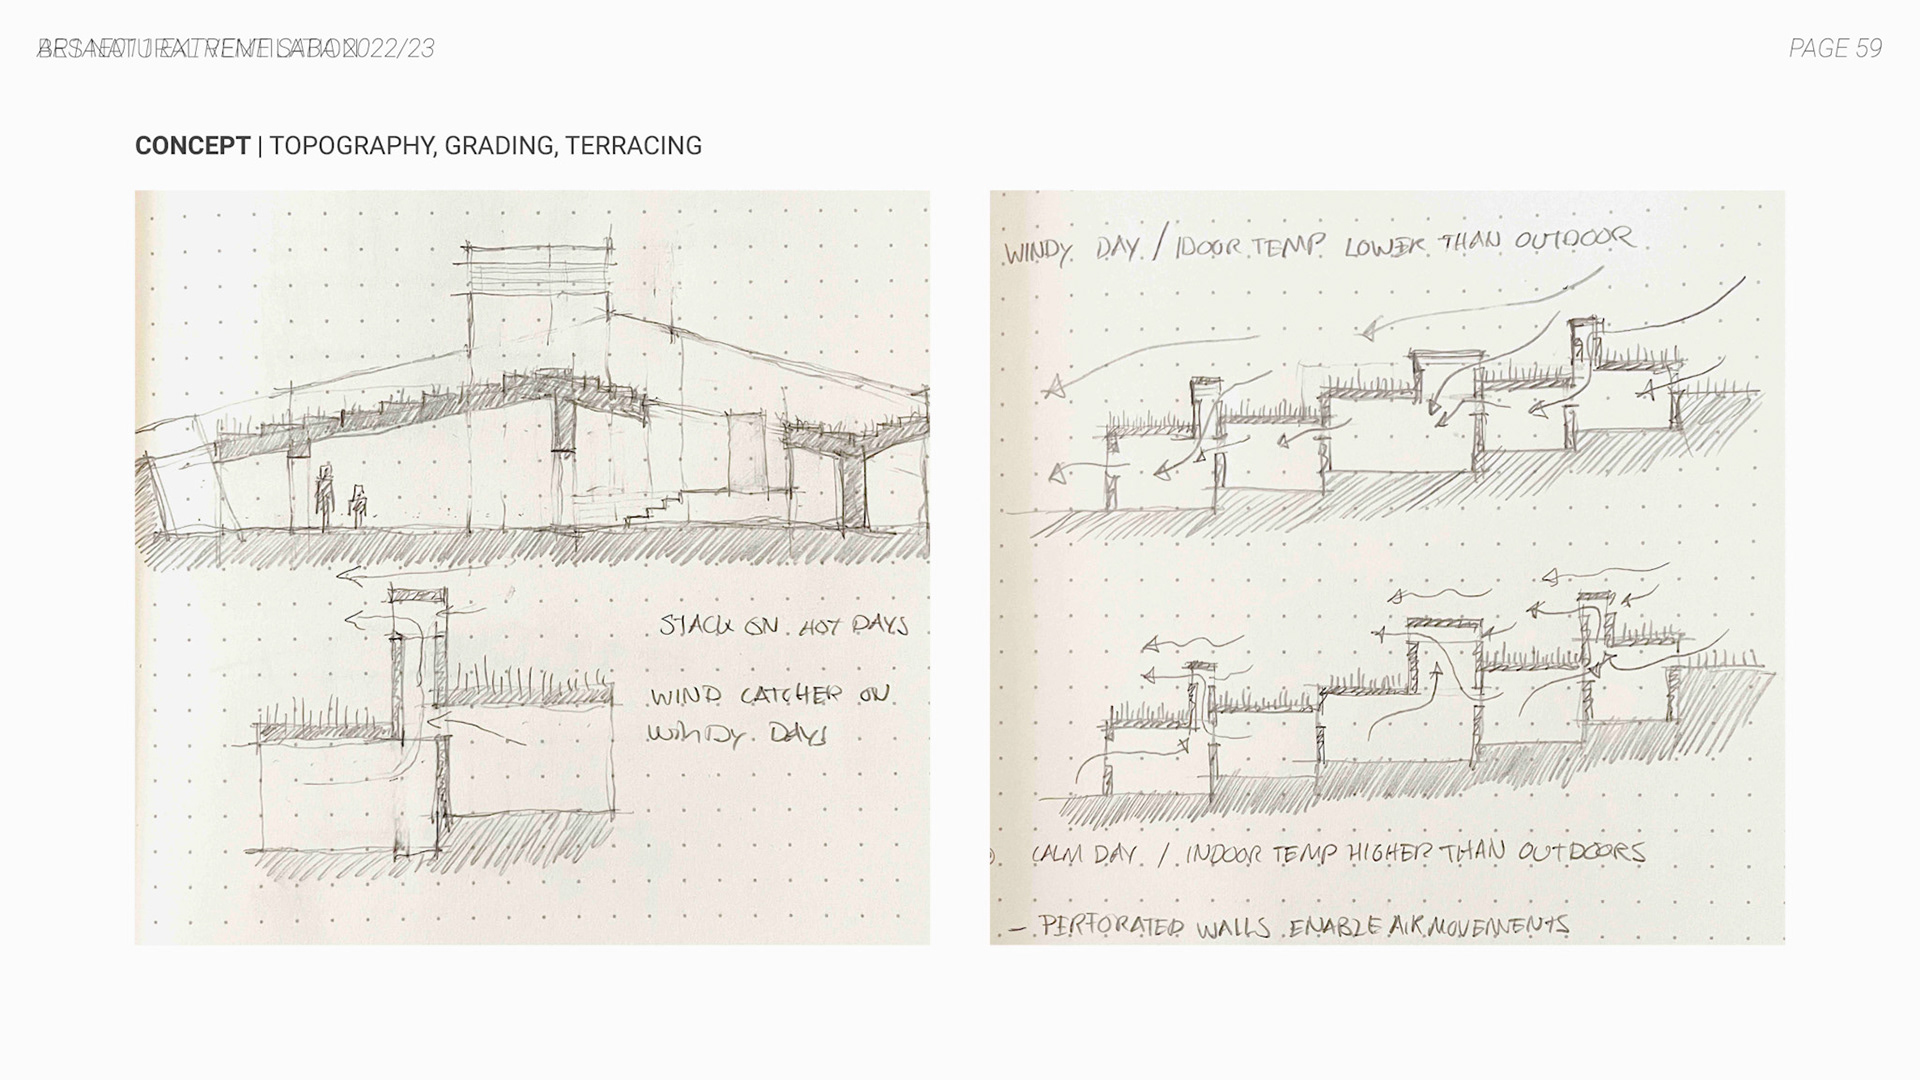 2022/23
PAGE 59
CONCEPT | TOPOGRAPHY, GRADING, TERRACING
STACK ON HOT DAYS
WIND CATCHER ON
WINDY DAYS
WINDY DAY / IDOOR TEMP LOWER THAN OUTDOOR
CALM DAY / INDOOR TEMP HIGHER THAN OUTDOORS
- PERFORATED WALLS ENABLE AIR MOVEMENTS